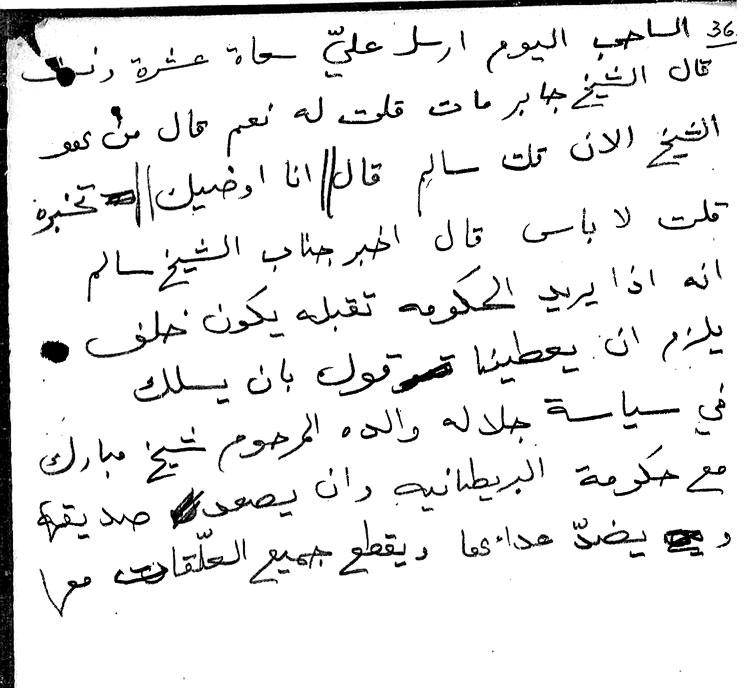 36
الساحب اليوم ارسل عليّ سعاة عشرة ونصف
قال الشيخ جابر مات قلت له نعم قال من
الشيخ الان قلت سالم قال انا اوضيك تخبره
قلت لا باس قال اخبر جناب الشيخ سالم
انه اذا يريد الحكومه تقبله يكون خلف
يلزم ان يعطينا قول بان يسلك
في سياسة جلاله والده المرحوم شيخ مبارك
مع حكومة البريطانيه وان يصعد صديقها
و يضدّ ويقطع جميع العلّقات مع